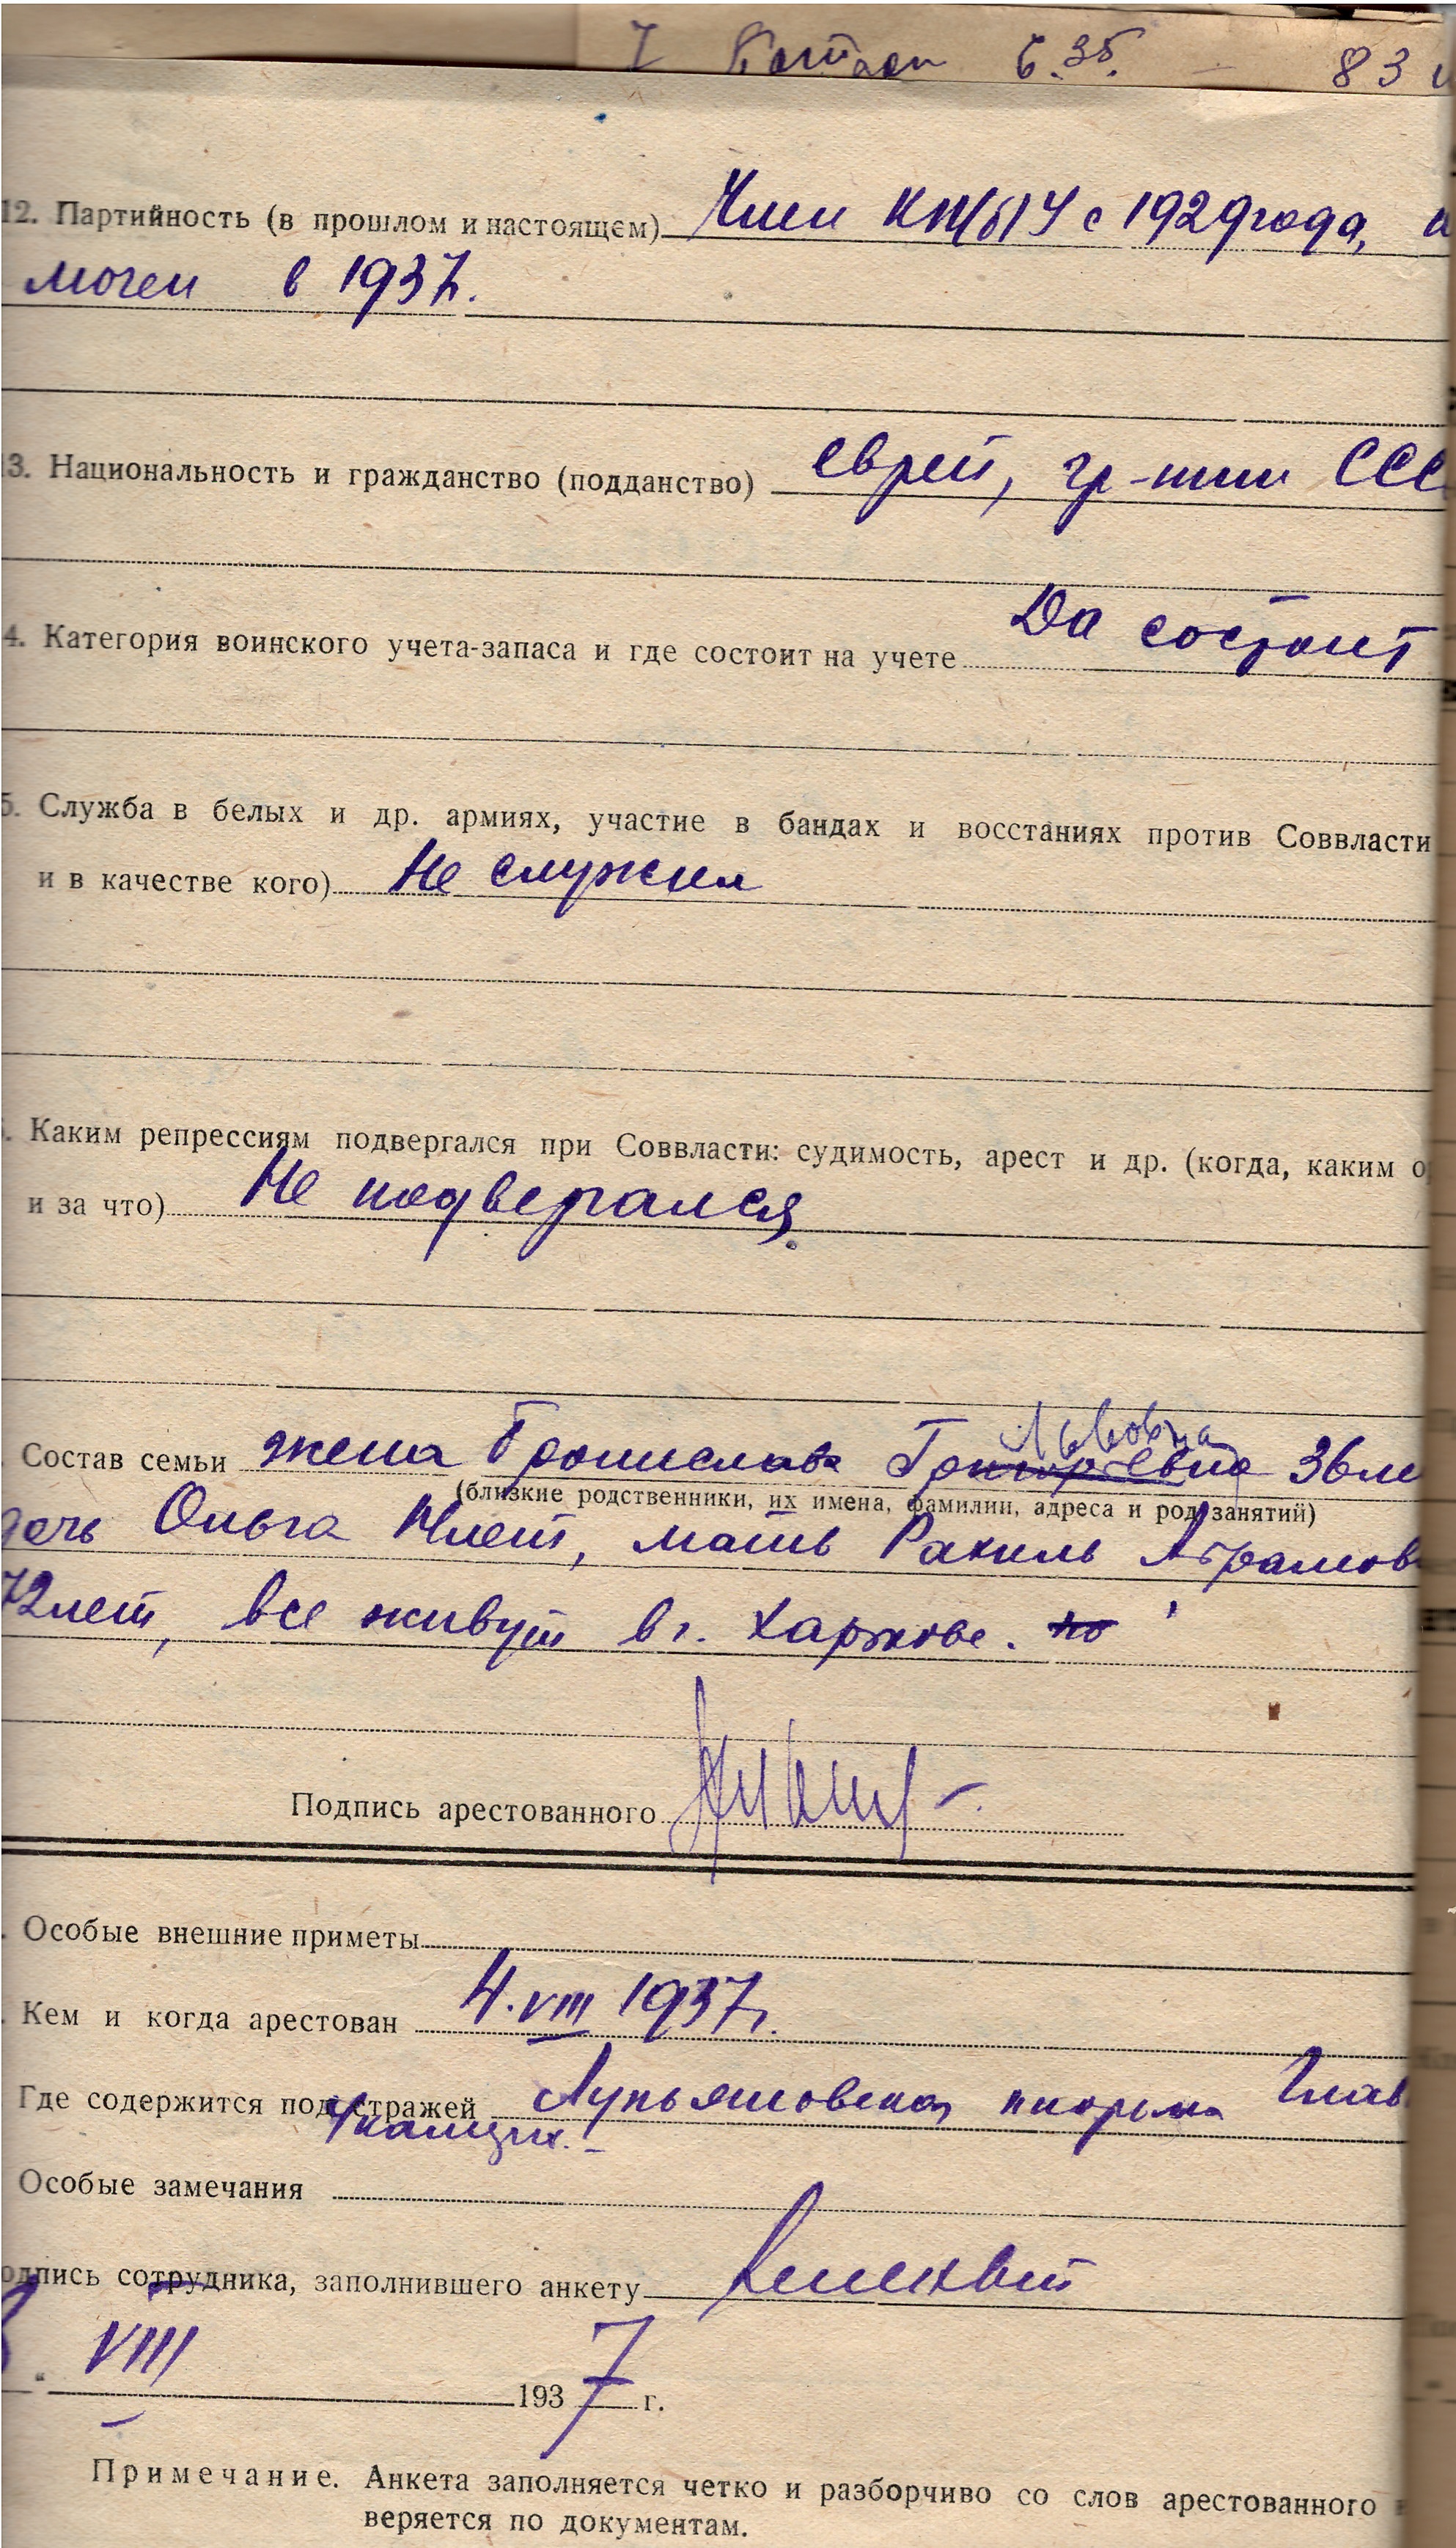 6.35. — 83
12. Партийность (в прошлом и настоящем) Член КП(б)У с 1929 года, и
ключен в 1937.
13. Национальность и гражданство (подданство) еврей, гр-нин ССС
4. Категория воинского учета-запаса и где состоит на учете Да состоит
5. Служба в белых и др. армиях, участие в бандах и восстаниях против Соввласти
и в качестве кого) Не служил
. Каким репрессиям подвергался при Соввласти: судимость, арест и др. (когда, каким о
и за что) Не подвергался.
Львовна
. Состав семьи жена Бронислава Григорьевна 36 ле
(близкие родственники, их имена, фамилии, адреса и род занятий)
дочь Ольга лет, мать Рахиль Абрамов
72 лет, все живут в г. Харькове. по
Подпись арестованного
. Особые внешние приметы
. Кем и когда арестован 4.VIII 1937 г.
Где содержится под стражей Лукьяновская тюрьма
Особые замечания
одпись сотрудника, заполнившего анкету
" VIII 1937 г.
Примечание. Анкета заполняется четко и разборчиво со слов арестованного
веряется по документам.